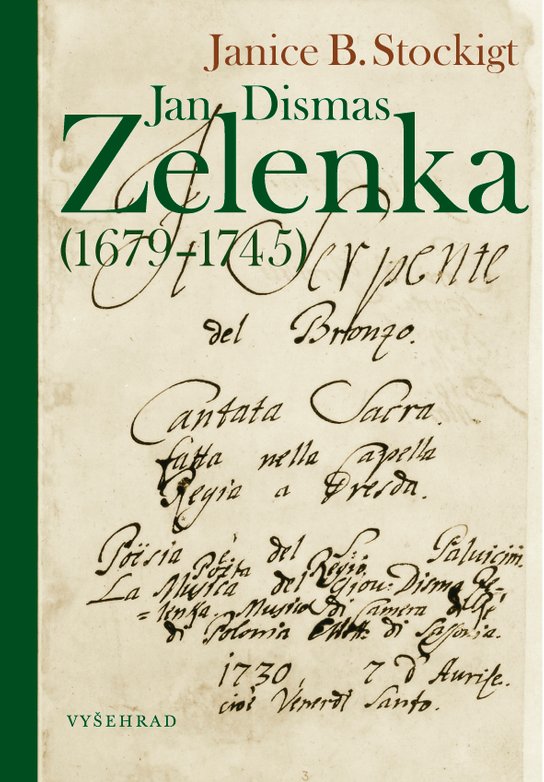 Janice B. Stockigt
Jan Dismas
Zelenka
(1679–1745)
Il Serpente
del Bronzo.
Cantata Sacra.
fatta nella Capella
Regia a Dresda.
Poësia è del Sr Palvicini
Poëta Regio.
La Musica del Giov: Disma Ze-
=lenka. Musico di Camera
di Polonia di Sassonia.
1730 7 d' Aprile.
cioè Venerdi Santo.
VYŠEHRAD
3